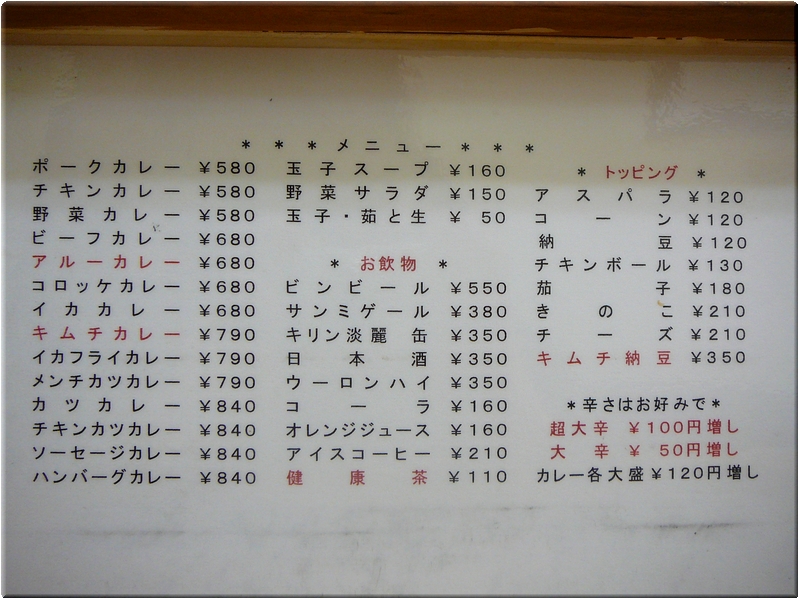 ＊ ＊ ＊ メニュー ＊ ＊ ＊
ポークカレー ¥580
チキンカレー ¥580
野菜カレー ¥580
ビーフカレー ¥680
アルーカレー ¥680
コロッケカレー ¥680
イカカレー ¥680
キムチカレー ¥790
イカフライカレー ¥790
メンチカツカレー ¥790
カツカレー ¥840
チキンカツカレー ¥840
ソーセージカレー ¥840
ハンバーグカレー ¥840
玉子スープ ¥160
野菜サラダ ¥150
玉子・茹と生 ¥ 50
＊ お飲物 ＊
ビンビール ¥550
サンミゲール ¥380
キリン淡麗 缶 ¥350
日本酒 ¥350
ウーロンハイ ¥350
コーラ ¥160
オレンジジュース ¥160
アイスコーヒー ¥210
健康茶 ¥110
＊ トッピング ＊
アスパラ ¥120
コーン ¥120
納豆 ¥120
チキンボール ¥130
茄子 ¥180
きのこ ¥210
チーズ ¥210
キムチ納豆 ¥350
＊辛さはお好みで＊
超大辛 ¥100円増し
大辛 ¥ 50円増し
カレー各大盛¥120円増し